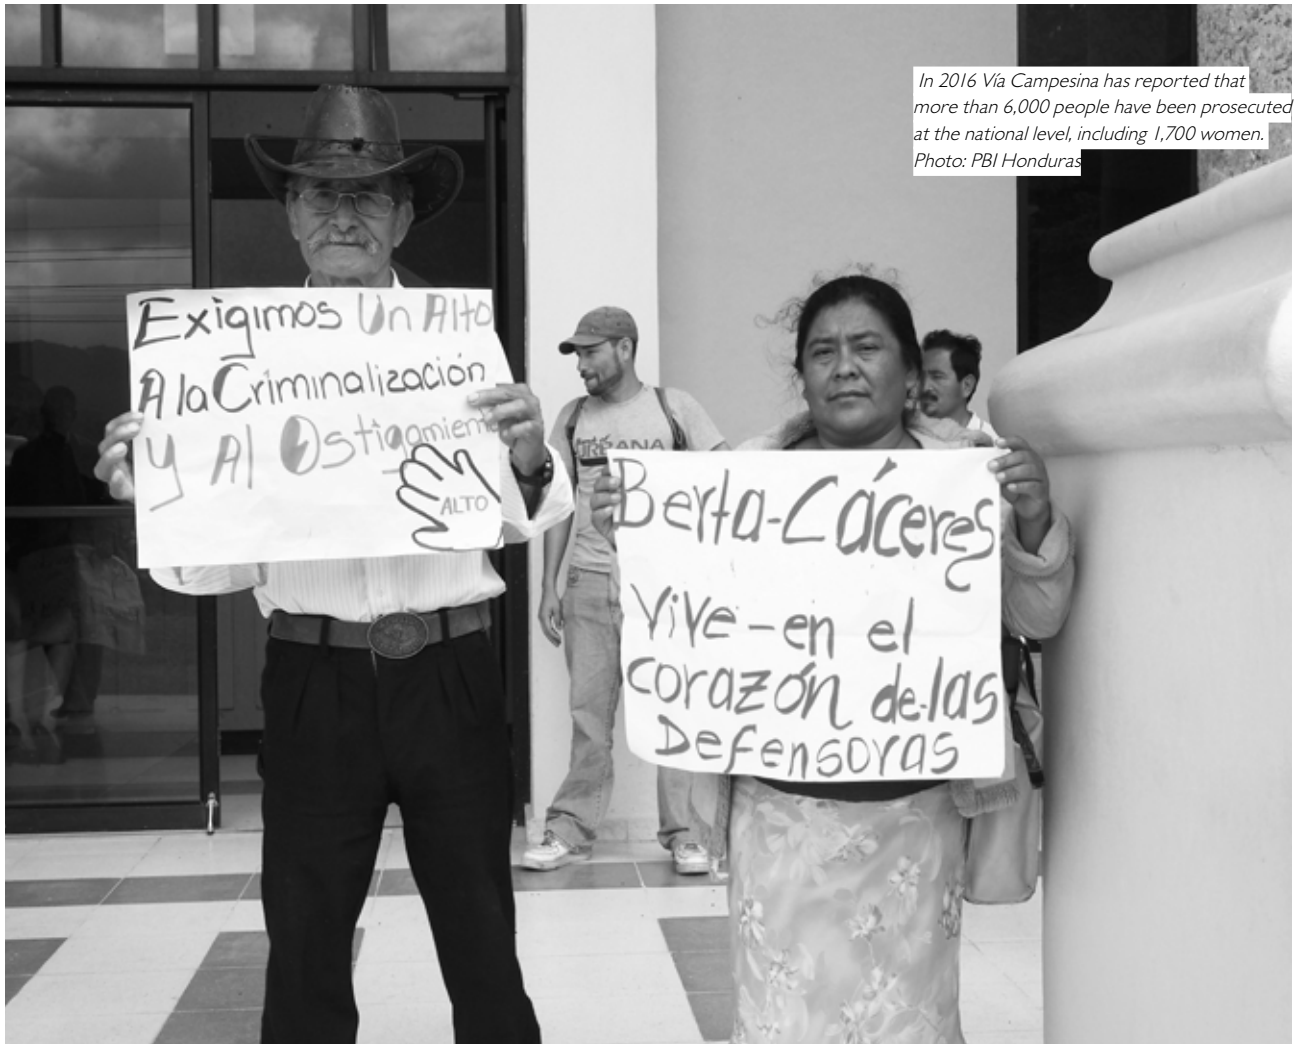 In 2016 Vía Campesina has reported that
more than 6,000 people have been prosecuted
at the national level, including 1,700 women.
Photo: PBI Honduras
Exigimos Un Alto
A la Criminalización
Y Al Ostigamiento
ALTO
Berta-Cáceres
Vive-en el
corazón de-las
Defensoras